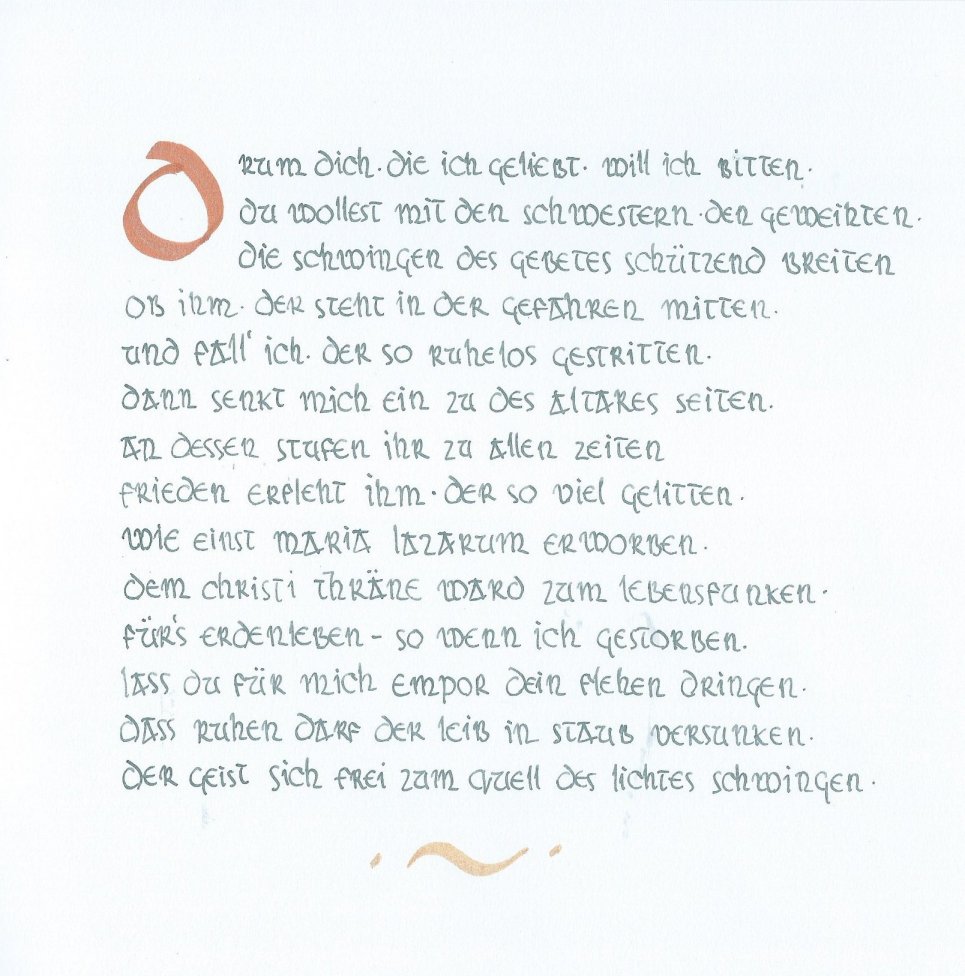 Drum dich · die ich geliebt · will ich bitten ·
du wollest mit den schwestern · den geweihten ·
die schwingen des gebetes schützend breiten
ob ihm · der steht in der gefahren mitten ·
und fall' ich · der so ruhelos gestritten ·
dann senkt mich ein zu des altares seiten ·
an dessen stufen ihr zu allen zeiten
frieden erfleht ihm · der so viel gelitten ·
wie einst maria lazarum erworben ·
dem christi thräne ward zum lebensfunken ·
für's erdenleben – so wenn ich gestorben ·
lass du für mich empor dein flehen dringen ·
dass ruhen darf der leib in staub versunken ·
der geist sich frei zum quell des lichtes schwingen ·